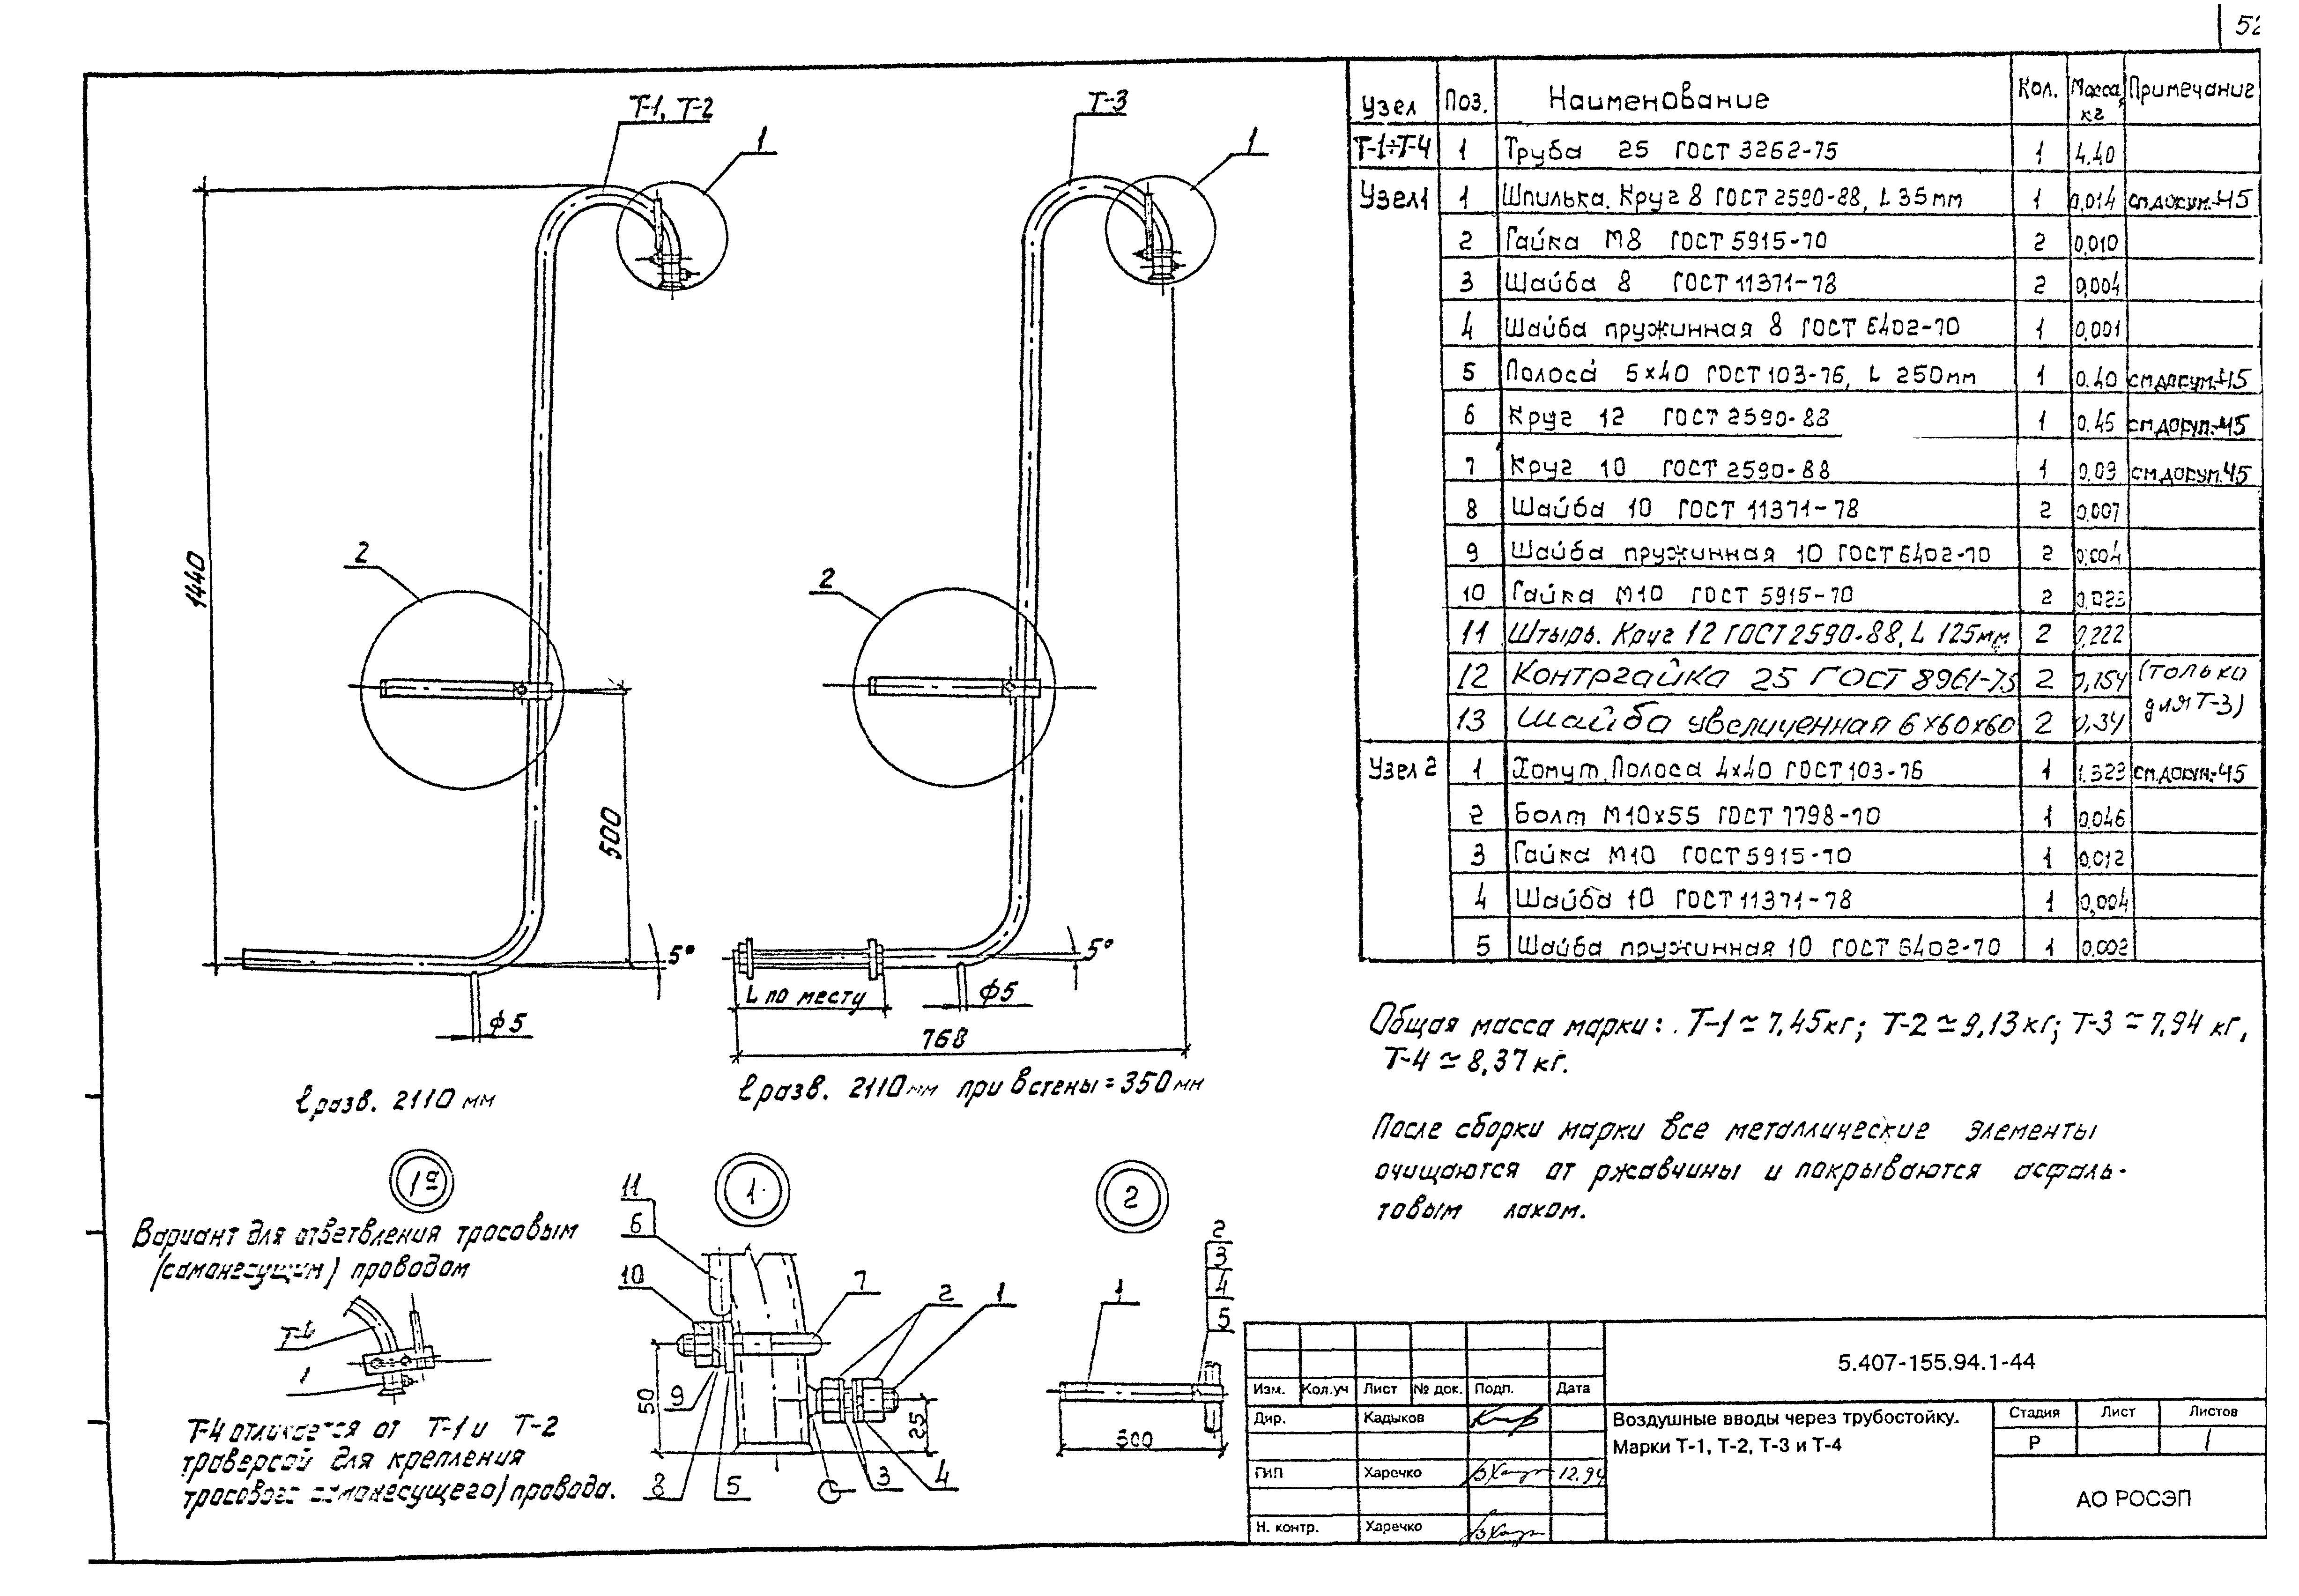 52
Т-1, Т-2
1
Т-3
1
2
2
1440
500
5°
5°
ϕ5
L по месту
ϕ5
768
ℓ разв. 2110 мм
ℓ разв. 2110 мм при встены = 350 мм
Узел Поз. Наименование Кол. Масса, кг Примечание
Т-1÷Т-4 1 Труба 25 ГОСТ 3262-75 1 4.40
Узел1 1 Шпилька. Круг 8 ГОСТ 2590-88, L 35мм 1 0,014 см.докум.-45
2 Гайка М8 ГОСТ 5915-70 2 0,010
3 Шайба 8 ГОСТ 11371-78 2 0,004
4 Шайба пружинная 8 ГОСТ 6402-70 1 0,001
5 Полоса 5×40 ГОСТ 103-76, L 250мм 1 0.40 см.докум.-45
6 Круг 12 ГОСТ 2590-88 1 0.45 см.докум.-45
7 Круг 10 ГОСТ 2590-88 1 0.09 см.докум.45
8 Шайба 10 ГОСТ 11371-78 2 0,007
9 Шайба пружинная 10 ГОСТ 6402-70 2 0,004
10 Гайка М10 ГОСТ 5915-70 2 0,023
11 Штырь. Круг 12 ГОСТ 2590-88, L 125мм 2 0,222
12 Контргайка 25 ГОСТ 8961-75 2 0,154 (только
13 Шайба увеличенная 6×60×60 2 0,34 для Т-3)
Узел 2 1 Хомут. Полоса 4×40 ГОСТ 103-76 1 1.323 см.докум.-45
2 Болт М10×55 ГОСТ 7798-70 1 0,046
3 Гайка М10 ГОСТ 5915-70 1 0,012
4 Шайба 10 ГОСТ 11371-78 1 0,004
5 Шайба пружинная 10 ГОСТ 6402-70 1 0.002
Общая масса марки: Т-1 ≃ 7,45кг; Т-2 ≃ 9,13 кг; Т-3 ≃ 7,94 кг,
Т-4 ≃ 8,37 кг.
После сборки марки все металлические элементы
очищаются от ржавчины и покрываются асфаль-
товым лаком.
1а
Вариант для ответвления тросовым
(самонесущим) проводом
Т-4
1
Т-4 отличается от Т-1 и Т-2
траверсой для крепления
тросового самонесущего) провода.
1
11
6
10
7
2
1
50
9
8
5
3
4
25
2
2
3
4
5
1
300
5.407-155.94.1-44
Изм. Кол.уч Лист № док. Подп. Дата
Дир. Кадыков
ГИП Харечко 12.94
Н. контр. Харечко
Воздушные вводы через трубостойку.
Марки Т-1, Т-2, Т-3 и Т-4
Стадия Лист Листов
Р 1
АО РОСЭП